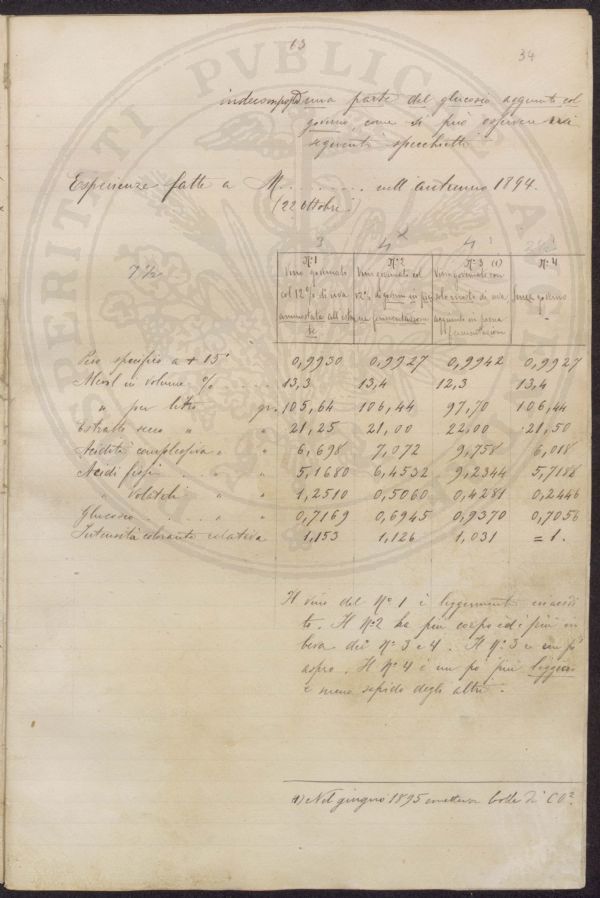 13
34
indecomposta una parte del glucosio aggiunto col
governo, come si può osservare nei
seguenti specchietti
Esperienze fatte a M........ nell'autunno 1894.
(22 Ottobre)
N.º 1 N.º 2 N.º 3 (1) N.º 4
Vino governato Vino governato col Vino governato con
col 12% di uva 12% di uva senza governo
ammostata fermentazione aggiunto in piena
fermentazione
Peso specifico a + 15º 0,9930 0,9927 0,9942 0,9927
Alcool in volume % .... 13,3 13,4 12,3 13,4
" per litro gr. 105,64 106,44 97,70 106,44
Estratto secco " " 21,25 21,00 22,00 21,50
Acidità complessiva " " 6,698 7,072 9,758 6,018
Acidi fissi .... " " 5,1680 6,4532 9,2344 5,7188
" Volatili " " 1,2510 0,5060 0,4281 0,2446
Glucosio ..... " " 0,7169 0,6945 0,9370 0,7056
Intensità colorante relativa 1,153 1,126 1,031 = 1.
Il vino del Nº 1 è leggermente inacidi
to. Il Nº 2 ha più corpo ed è più
dei Nº 3 e 4. Il Nº 3 è un pò
aspro. Il Nº 4 è un pò più leggero
e meno sapido degli altri.
(1) Nel giugno 1895 emetteva bolle di CO².
SPERITATI PVBLICAE AVGENDAE